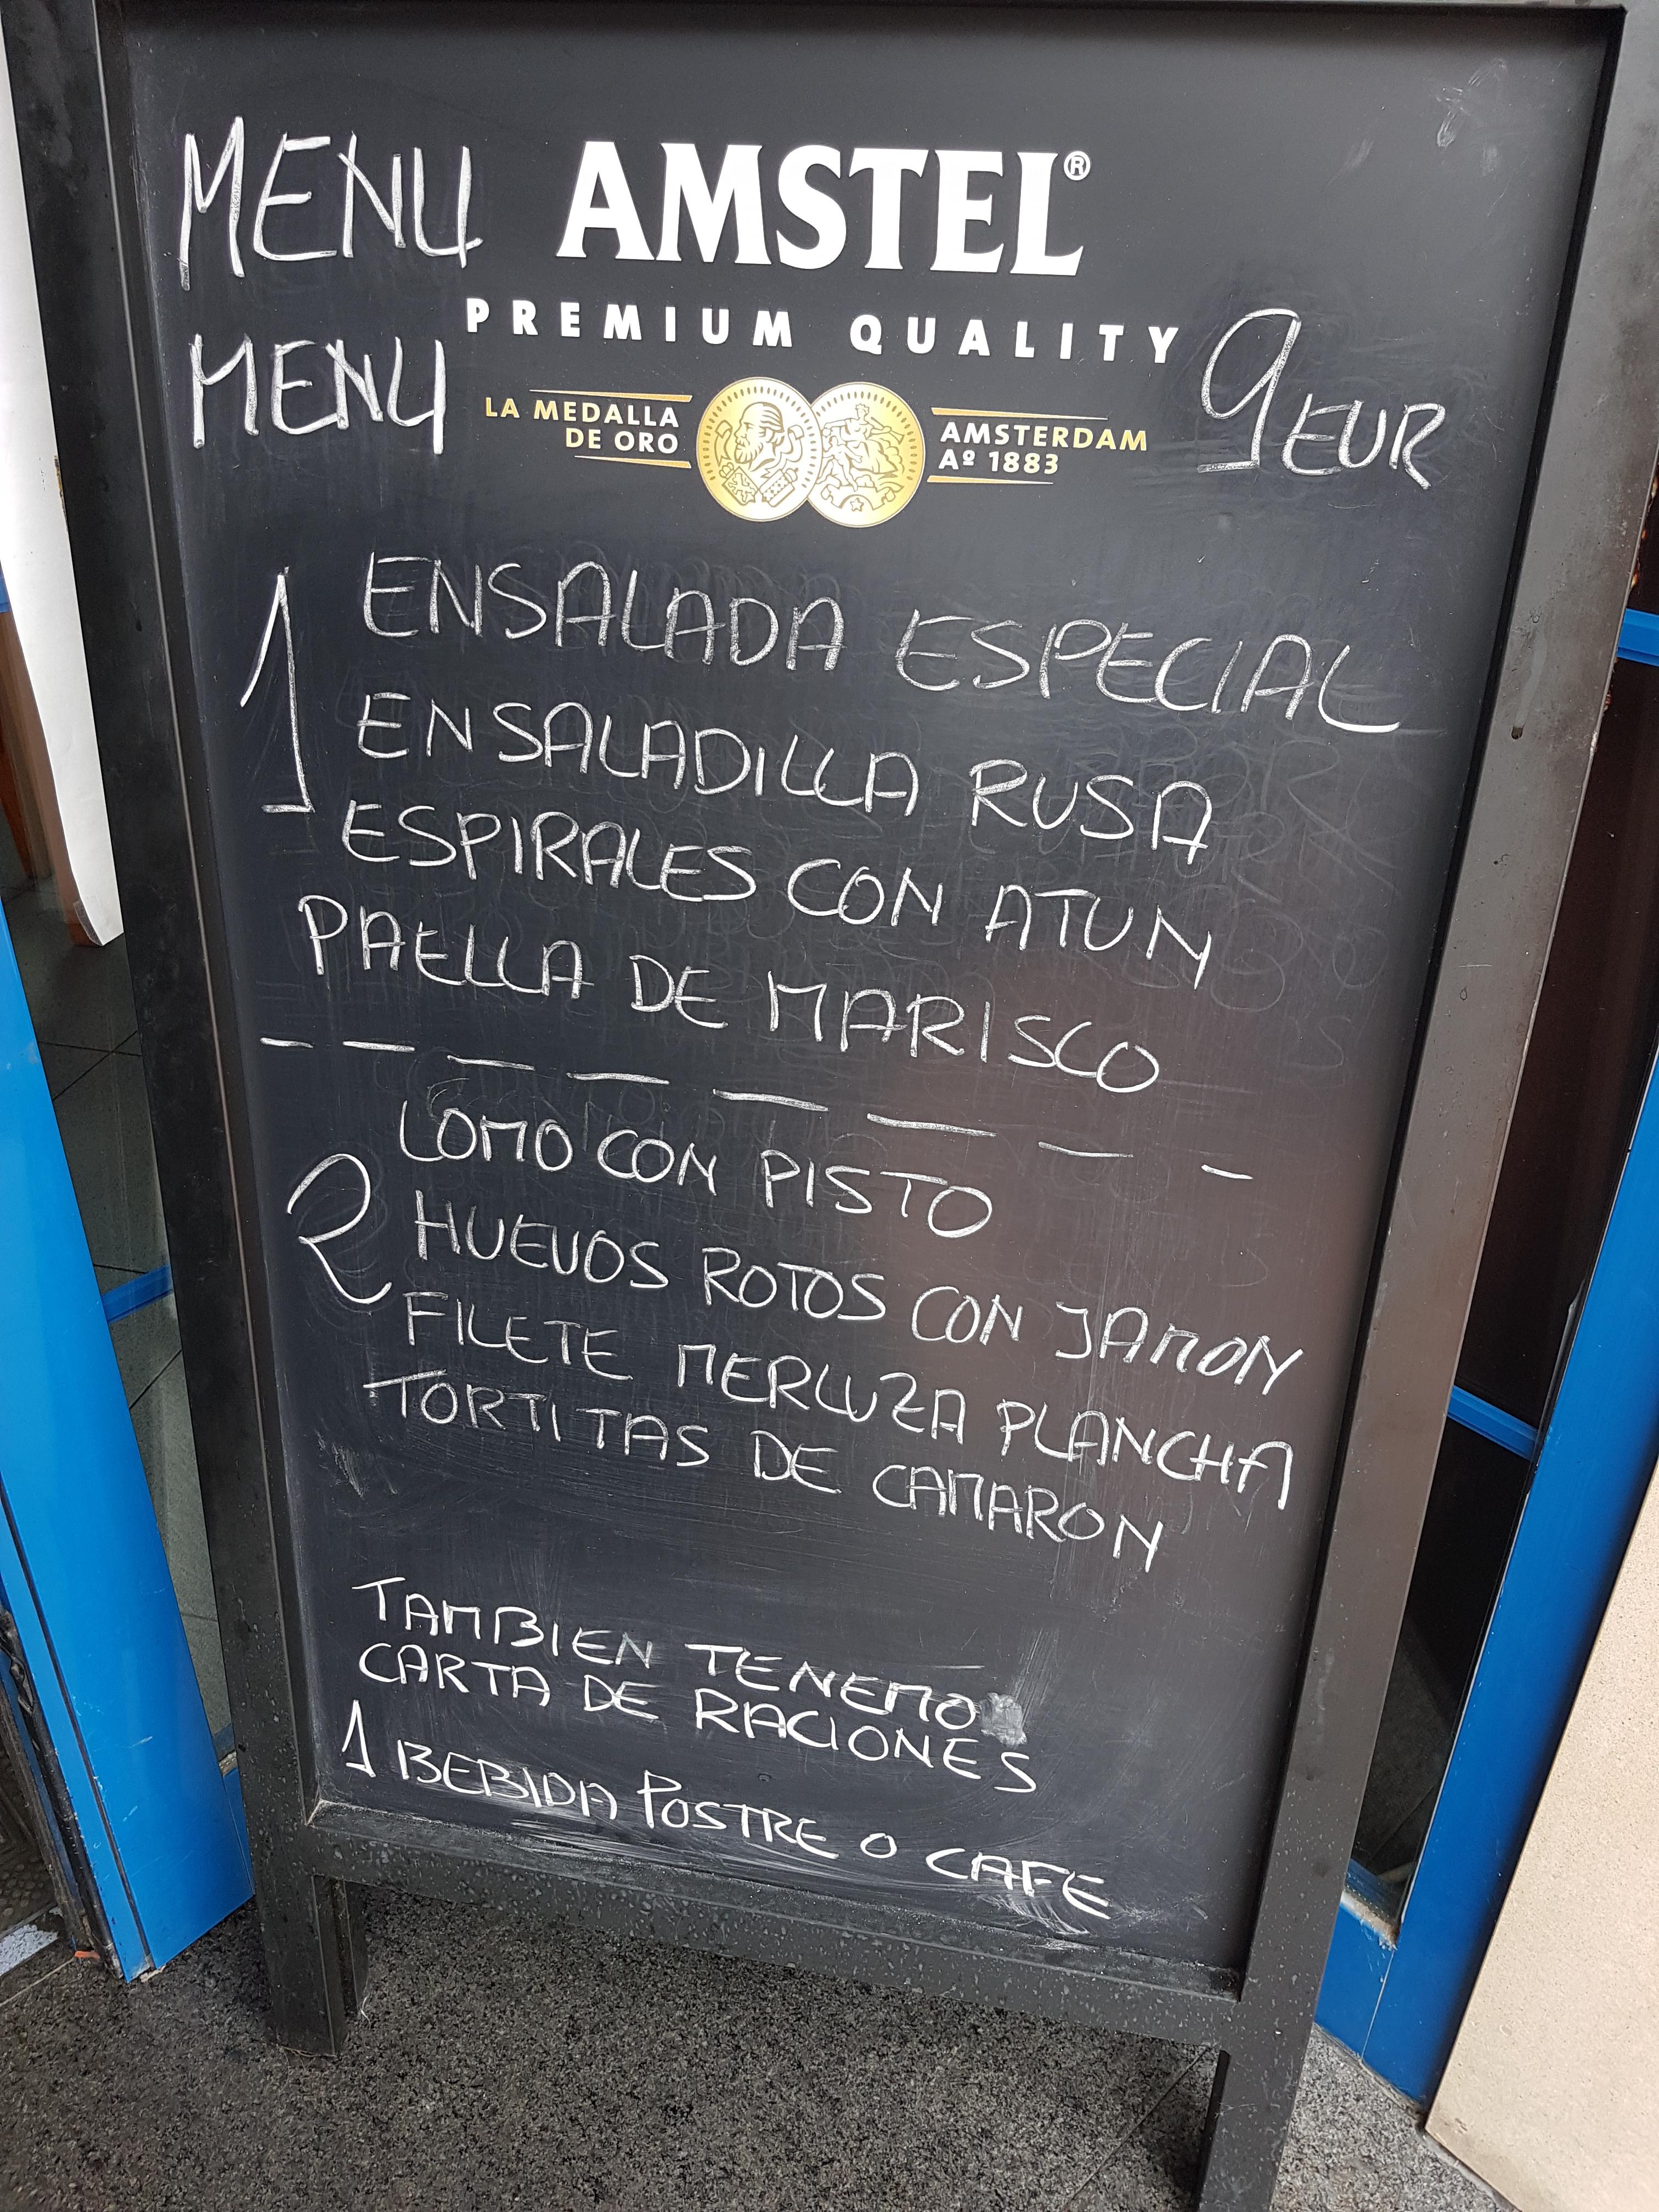 MENU AMSTEL®
PREMIUM QUALITY
MENU
LA MEDALLA
DE ORO
AMSTERDAM
Aº 1883
9 EUR
1 ENSALADA ESPECIAL
ENSALADILLA RUSA
ESPIRALES CON ATUN
PAELLA DE MARISCO
2 LOMO CON PISTO
HUEVOS ROTOS CON JAMON
FILETE MERLUZA PLANCHA
TORTITAS DE CAMARON
TAMBIEN TENEMO
CARTA DE RACIONES
1 BEBIDA POSTRE O CAFE